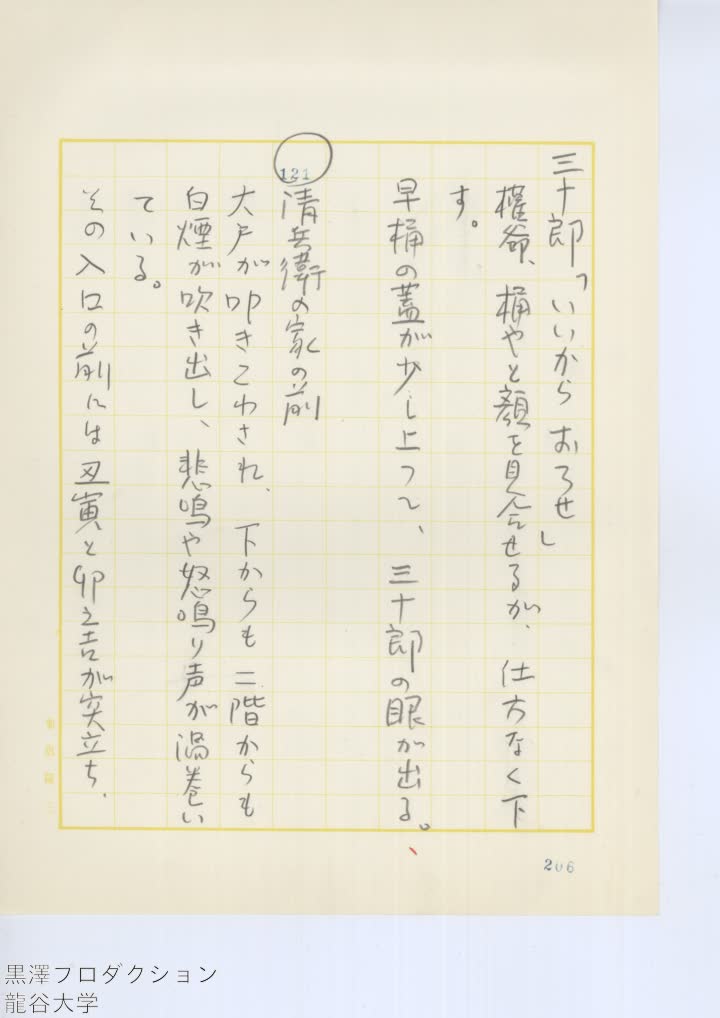 三十郎「いいから おろせ」
権爺、桶やと顔を見合せるが、仕方なく下
す。
早桶の蓋が少し上って、三十郎の眼が出る。
121
清兵衛の家の前
大戸が叩きこわされ、下からも二階からも
白煙が吹き出し、悲鳴や怒鳴り声が渦巻い
ている。
その入口の前には丑寅と卯之吉が突立ち、
206
黒澤プロダクション
龍谷大学